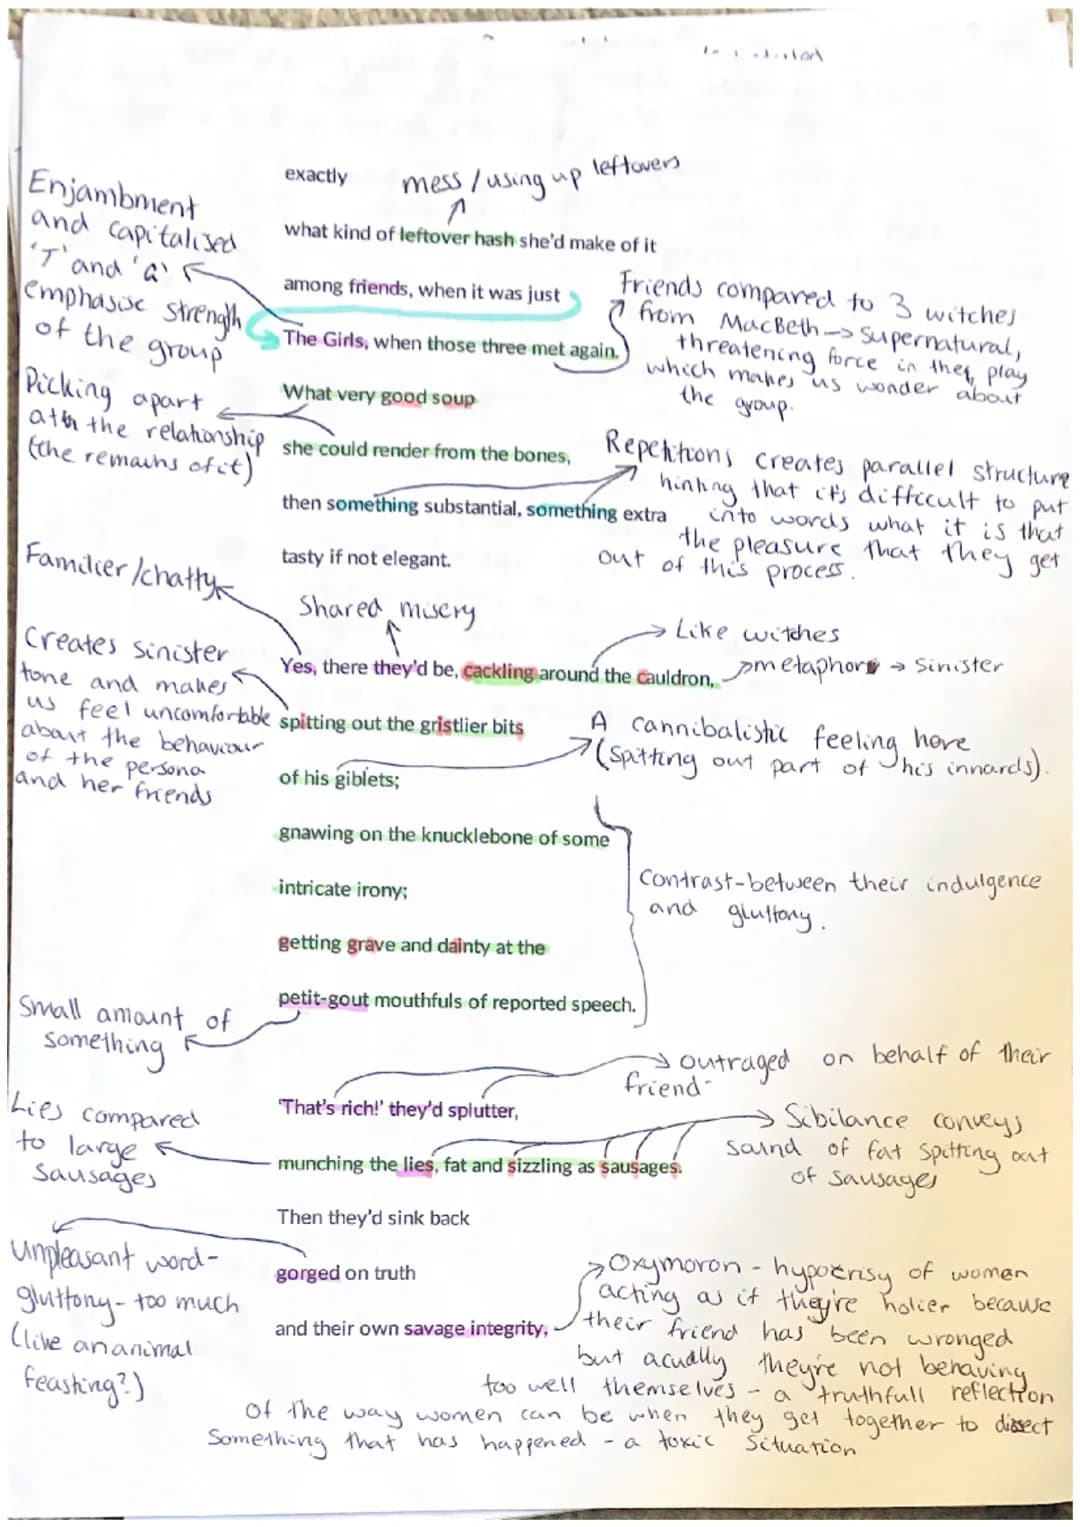 exactly
mess / using up leftovers
Enjambment
and capitalised
'T' and 'G'
emphasise strength
of the group
what kind of leftover hash she'd make of it
among friends, when it was just
The Girls, when those three met again.
Friends compared to 3 witches
from MacBeth → Supernatural,
threatening force in the play
which makes us wonder about
the group.
What very good soup
Picking apart
the relationship
(the remains of it)
she could render from the bones,
then something substantial, something extra
Repetitions creates parallel structure
hinting that it's difficult to put
into words what it is that
the pleasure that they get
out of this process.
tasty if not elegant.
Familier/chatty
Shared misery
Yes, there they'd be, cackling around the cauldron,
→ Like witches
metaphor → Sinister
Creates sinister
tone and makes
us feel uncomfortable
about the behaviour
of the persona
and her friends
spitting out the gristlier bits
of his giblets;
A cannibalistic feeling here
(spitting out part of his innards).
gnawing on the knucklebone of some
intricate irony;
getting grave and dainty at the
petit-gout mouthfuls of reported speech.
Contrast-between their indulgence
and gluttony.
Small amount of
something
'That's rich!' they'd splutter,
outraged on behalf of their
friend-
Lies compared
to large
sausages
munching the lies, fat and sizzling as sausages.
Sibilance conveys
sound of fat spitting out
of sausages
Then they'd sink back
gorged on truth
and their own savage integrity,
Unpleasant word-
gluttony- too much
(like an animal
feasting?)
Oxymoron - hypocrisy of women
acting as if they're holier because
their friend has been wronged
but acudlly they're not behaving
too well themselves - a truthfull reflection
of the way women can be when they get together to dissect
Something that has happened - a toxic situation